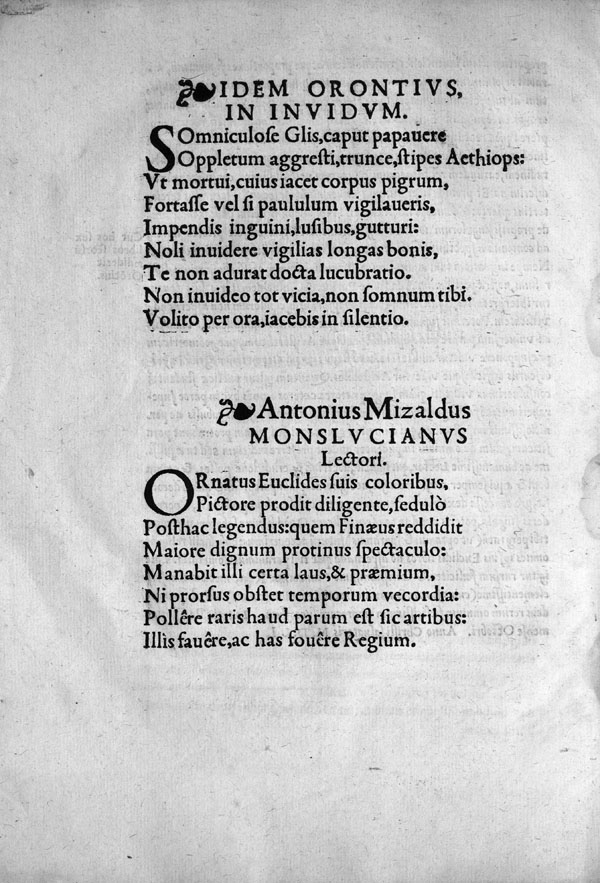 ❧IDEM ORONTIVS,
IN INVIDVM.
SOmniculoſe Glis,caput papauere
Oppletum aggreſti,trunce,ſtipes Aethiops:
Vt mortui,cuius iacet corpus pigrum,
Fortaſſe vel ſi paululum vigilaueris,
Impendis inguini,luſibus,gutturi:
Noli inuidere vigilias longas bonis,
Te non adurat docta lucubratio.
Non inuideo tot vicia,non ſomnum tibi.
Volito per ora,iacebis in ſilentio.
❧Antonius Mizaldus
MONSLVCIANVS
Lectori.
ORnatus Euclides ſuis coloribus,
Pictore prodit diligente,ſedulò
Poſthac legendus:quem Finæus reddidit
Maiore dignum protinus ſpectaculo:
Manabit illi certa laus,& præmium,
Ni prorſus obſtet temporum vecordia:
Pollêre raris haud parum eſt ſic artibus:
Illis fauêre,ac has fouêre Regium.